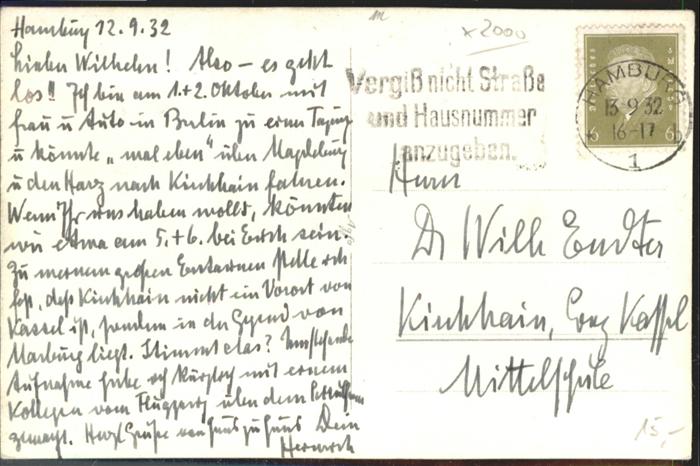 Hamburg 12.9.32
Lieber Wilhelm! Also – es geht
los!! Ich bin am 1.+2. Oktober mit
Frau u Auto in Berlin zu einer Tagung
u könnte „mal eben" über Magdeburg
u den Harz nach Kirchhain fahren.
Wenn Ihr uns haben wollt, könnten
wir etwa am 5.+6. bei Euch sein.
Zu meinem großen Erstaunen stelle ich
fest, daß Kirchhain nicht ein Vorort von
Kassel ist, sondern in der Gegend von
Marburg liegt. Stimmt das? Umstehende
Aufnahme habe ich kürzlich mit einem
Kollegen vom Flugzeug über dem
gemacht. Herzl Grüße von Haus zu Haus Dein
Heinrich
x 2000
Vergiß nicht Straße
und Hausnummer
anzugeben.
HAMBURG
13.9.32
16-17
1
6 6
Herrn
Dr Wilh Endter
Kirchhain, Bez Kassel
Mittelschule
15,-